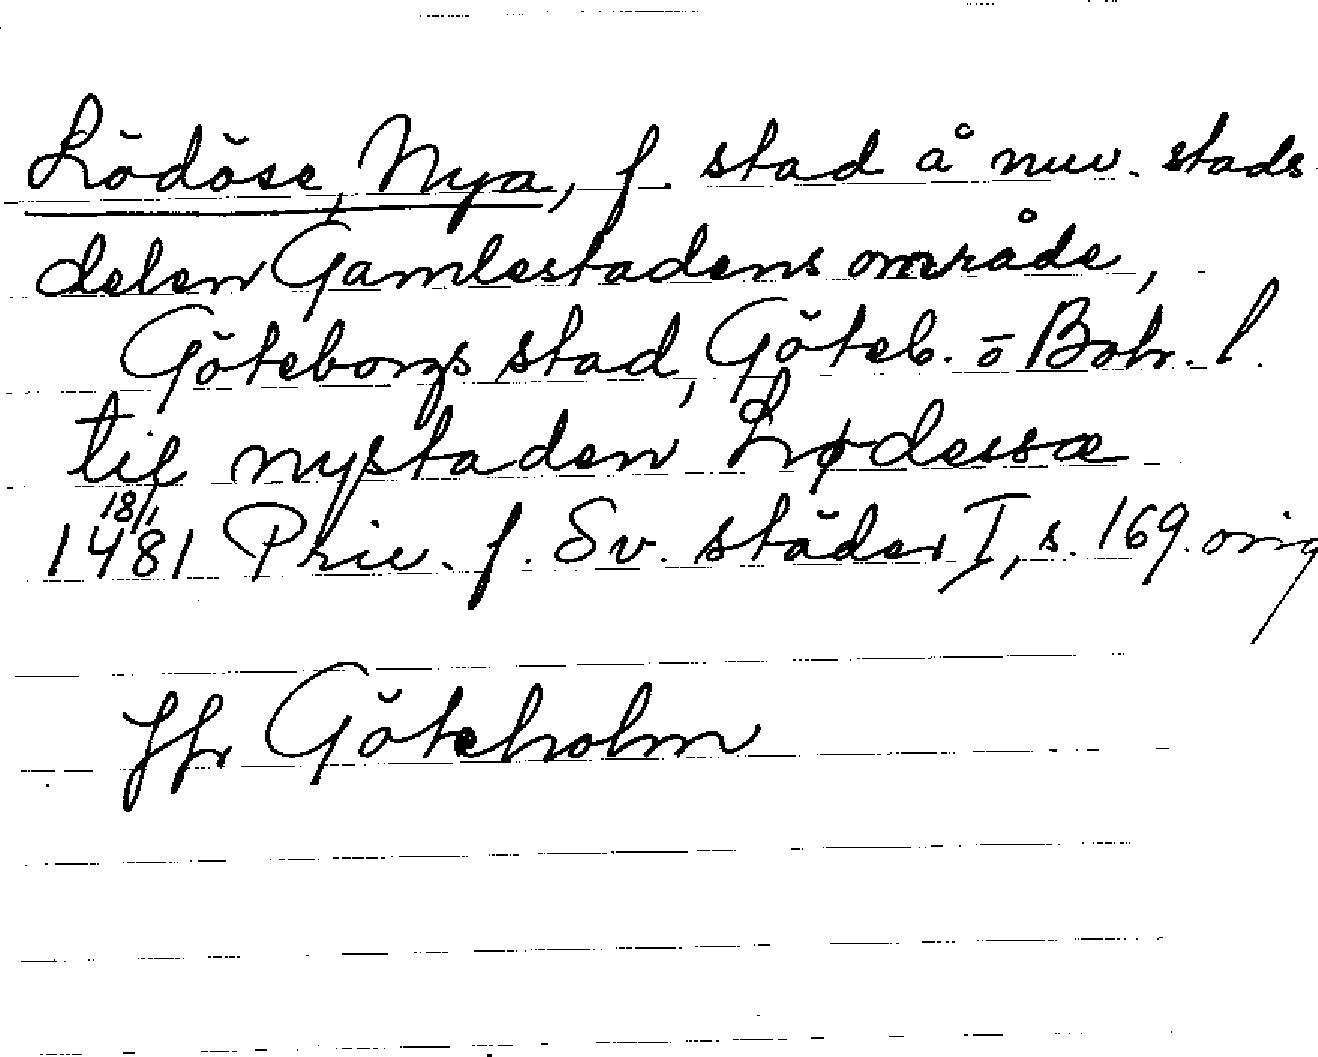 Lödöse, Nya, f. stad å nuv. stads-
delen Gamlestadens område,
Göteborgs stad, Göteb. o Boh. l.
till nystaden Lødessæ
18/1
1481 Priv. f. Sv. städer I, s. 169. orig
Jfr Göteholm